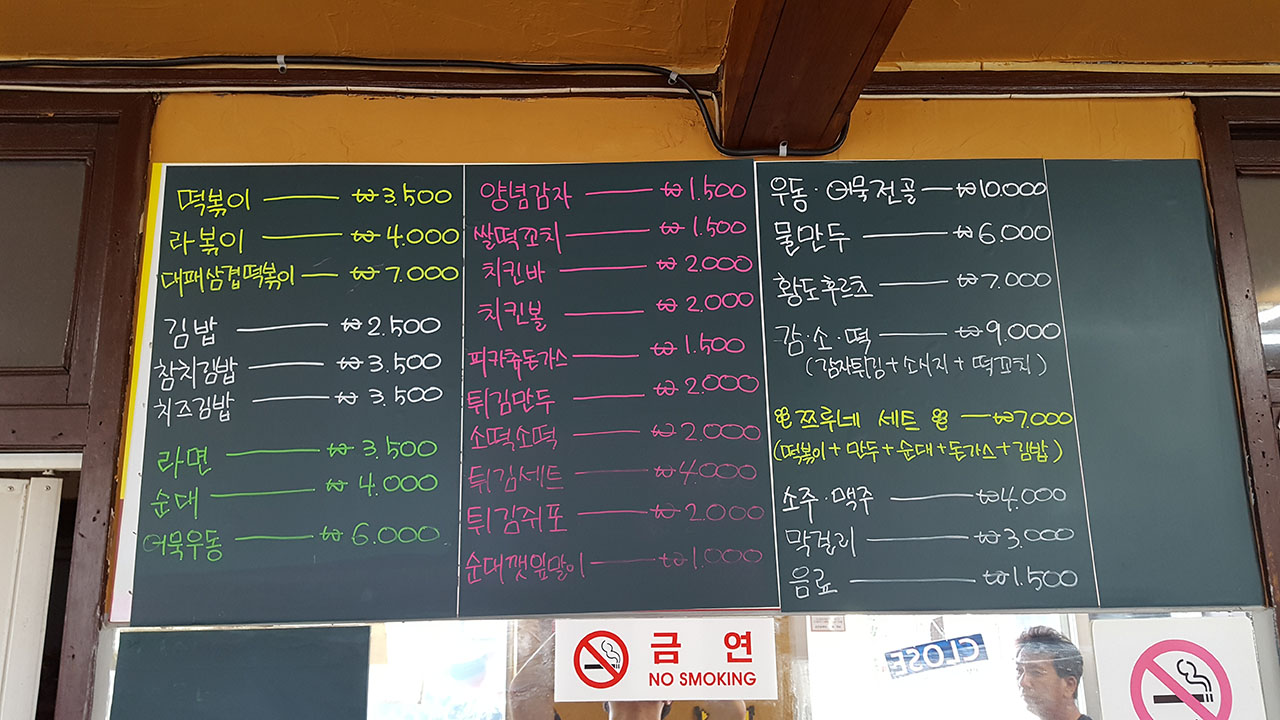 떡볶이 — ₩3.500
라볶이 — ₩4.000
대패삼겹떡볶이 — ₩7.000
김밥 — ₩2.500
참치김밥 — ₩3.500
치즈김밥 — ₩3.500
라면 — ₩3.500
순대 — ₩4.000
어묵우동 — ₩6.000
양념감자 — ₩1.500
쌀떡꼬치 — ₩1.500
치킨바 — ₩2.000
치킨볼 — ₩2.000
피카츄돈가스 — ₩1.500
튀김만두 — ₩2.000
소떡소떡 — ₩2.000
튀김세트 — ₩4.000
튀김쥐포 — ₩2.000
순대깻잎말이 — ₩1.000
우동·어묵전골 — ₩10.000
물만두 — ₩6.000
황도후르츠 — ₩7.000
감·소·떡 — ₩9.000
(감자튀김+소시지+떡꼬치)
쯔루네 세트 — ₩7.000
(떡볶이+만두+순대+돈가스+김밥)
소주·맥주 — ₩4.000
막걸리 — ₩3.000
음료 — ₩1.500
금 연
NO SMOKING
CLOSE